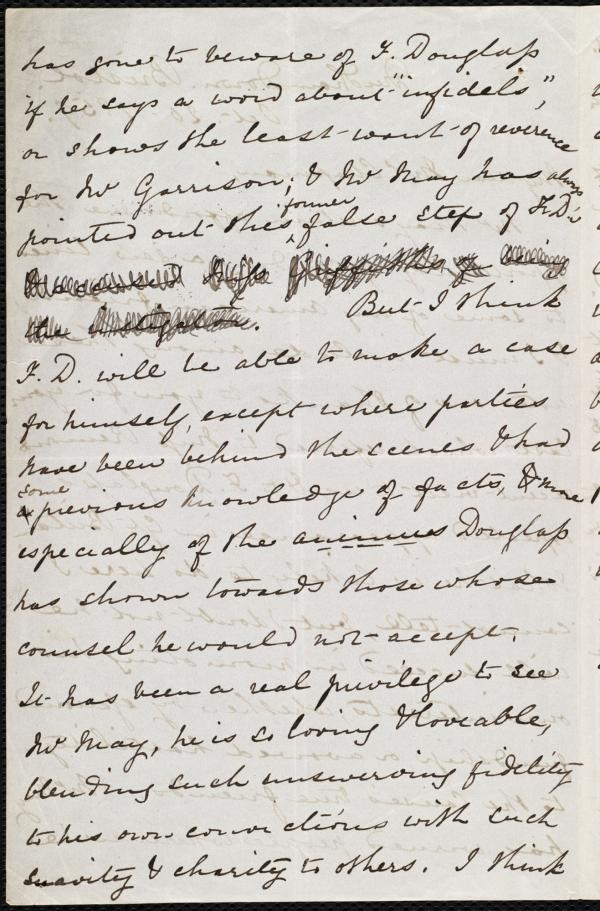 has gone to beware of F. Douglass
if he says a word about "infidels",
or shows the least want of reverence
for Mr Garrison; & Mr May has also
pointed out this former false step of F.D.
But I think
F. D. will be able to make a case
for himself, except where parties
have been behind the scenes & had
some previous knowledge of facts, & more
especially of the animus Douglass
has shown towards those whose
counsel he would not accept.
It has been a real privilege to see
Mr May, he is so loving & loveable,
blending such unswerving fidelity
to his own convictions with such
suavity & charity to others. I think